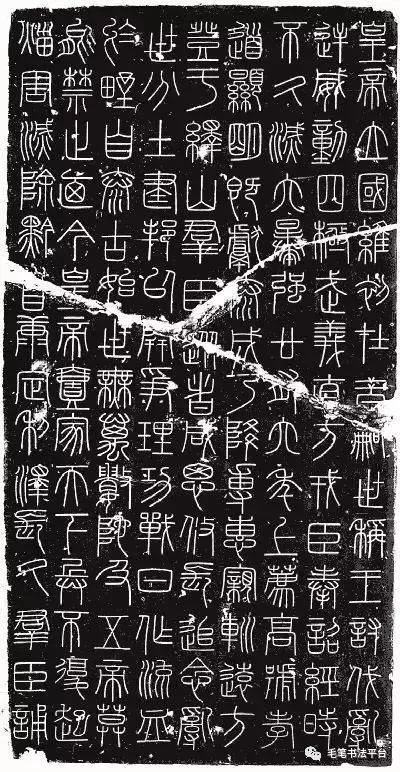 皇帝立國維初在昔嗣世稱王討伐亂
逆威動四極武義直方戎臣奉詔經時
不久滅六暴強廿有六年上薦高號孝
道顯明既獻泰成乃降專惠寴巡遠方
登于繹山羣臣從者咸思攸長追念亂
世分土建邦以開爭理功戰日作流血
於野自泰古始世無萬數陀及五帝莫
能禁止廼今皇帝壹家天下兵不復起
災害滅除黔首康定利澤長久羣臣誦
毛笔书法平台